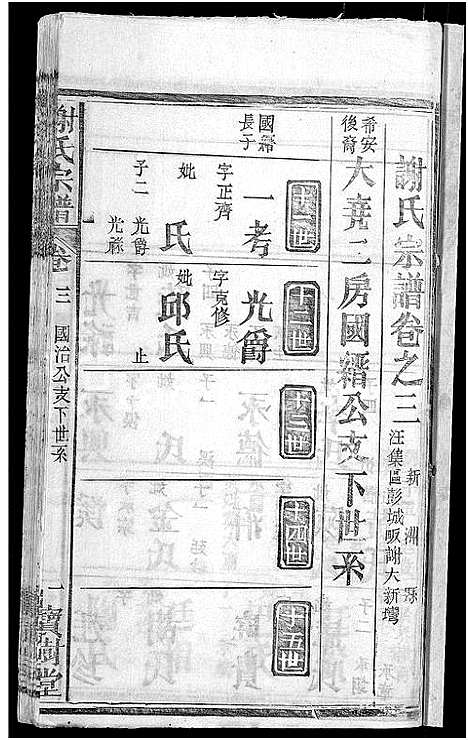 謝氏宗譜卷之三
新洲縣
汪集區彭城畈謝大新灣
希安後裔
大堯二房國縉公支下世系
十一世
十二世
十三世
十四世
十五世
國縉長子
一考
字正齊
妣 氏
子二 光爵 光祿
光爵
字克修
妣 邱氏
止
謝氏宗譜
卷三
國治公支下世系
一
寶樹堂